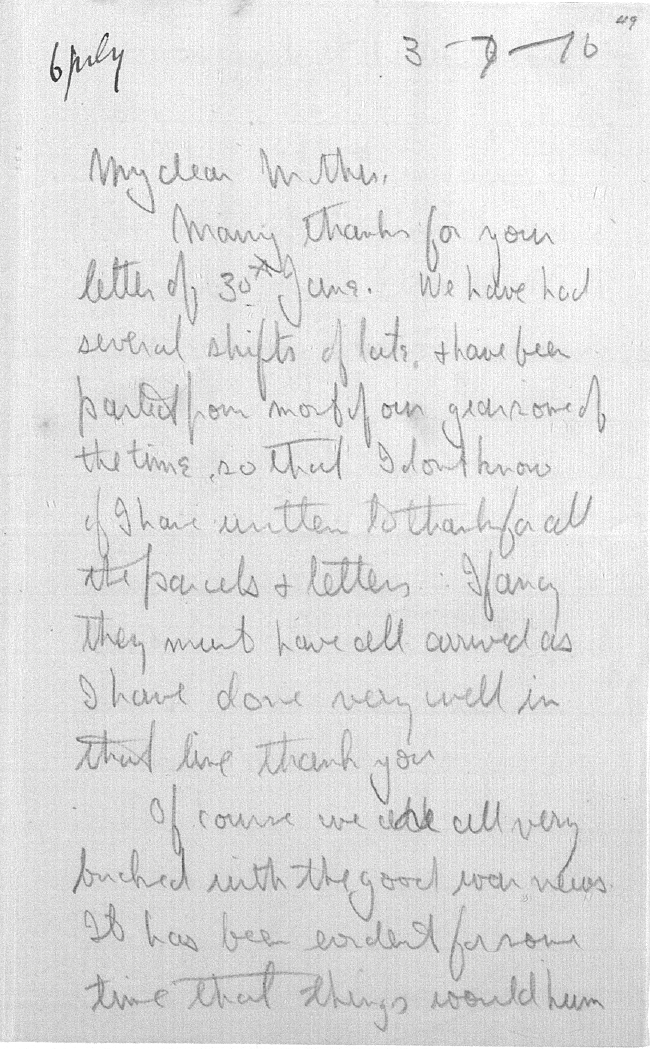 49
6 July
3-7-16
My dear Mother,
Many thanks for your
letter of 30th June. We have had
several shifts of late, & have been
parted from most of our gear some of
the time, so that I dont know
if I have written to thank for all
the parcels & letters. I fancy
they must have all arrived as
I have done very well in
that line thank you
Of course we are all very
bucked with the good war news.
It has been evident for some
time that things would hum